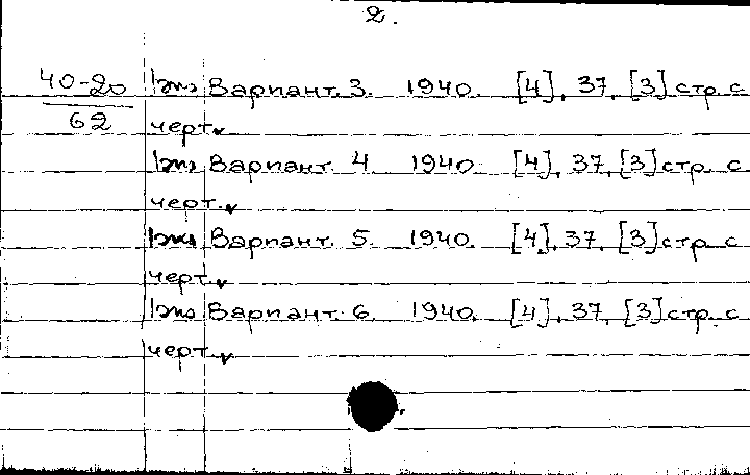 2.
40-20 1эк. Вариант. 3. 1940. [4], 37, [3] стр. с
62 черт.
1эк. Вариант. 4 1940. [4], 37, [3] стр. с
черт.
1эк. Вариант. 5. 1940. [4], 37, [3] стр. с
черт.
1эк. Вариант. 6. 1940. [4], 37, [3] стр. с
черт.